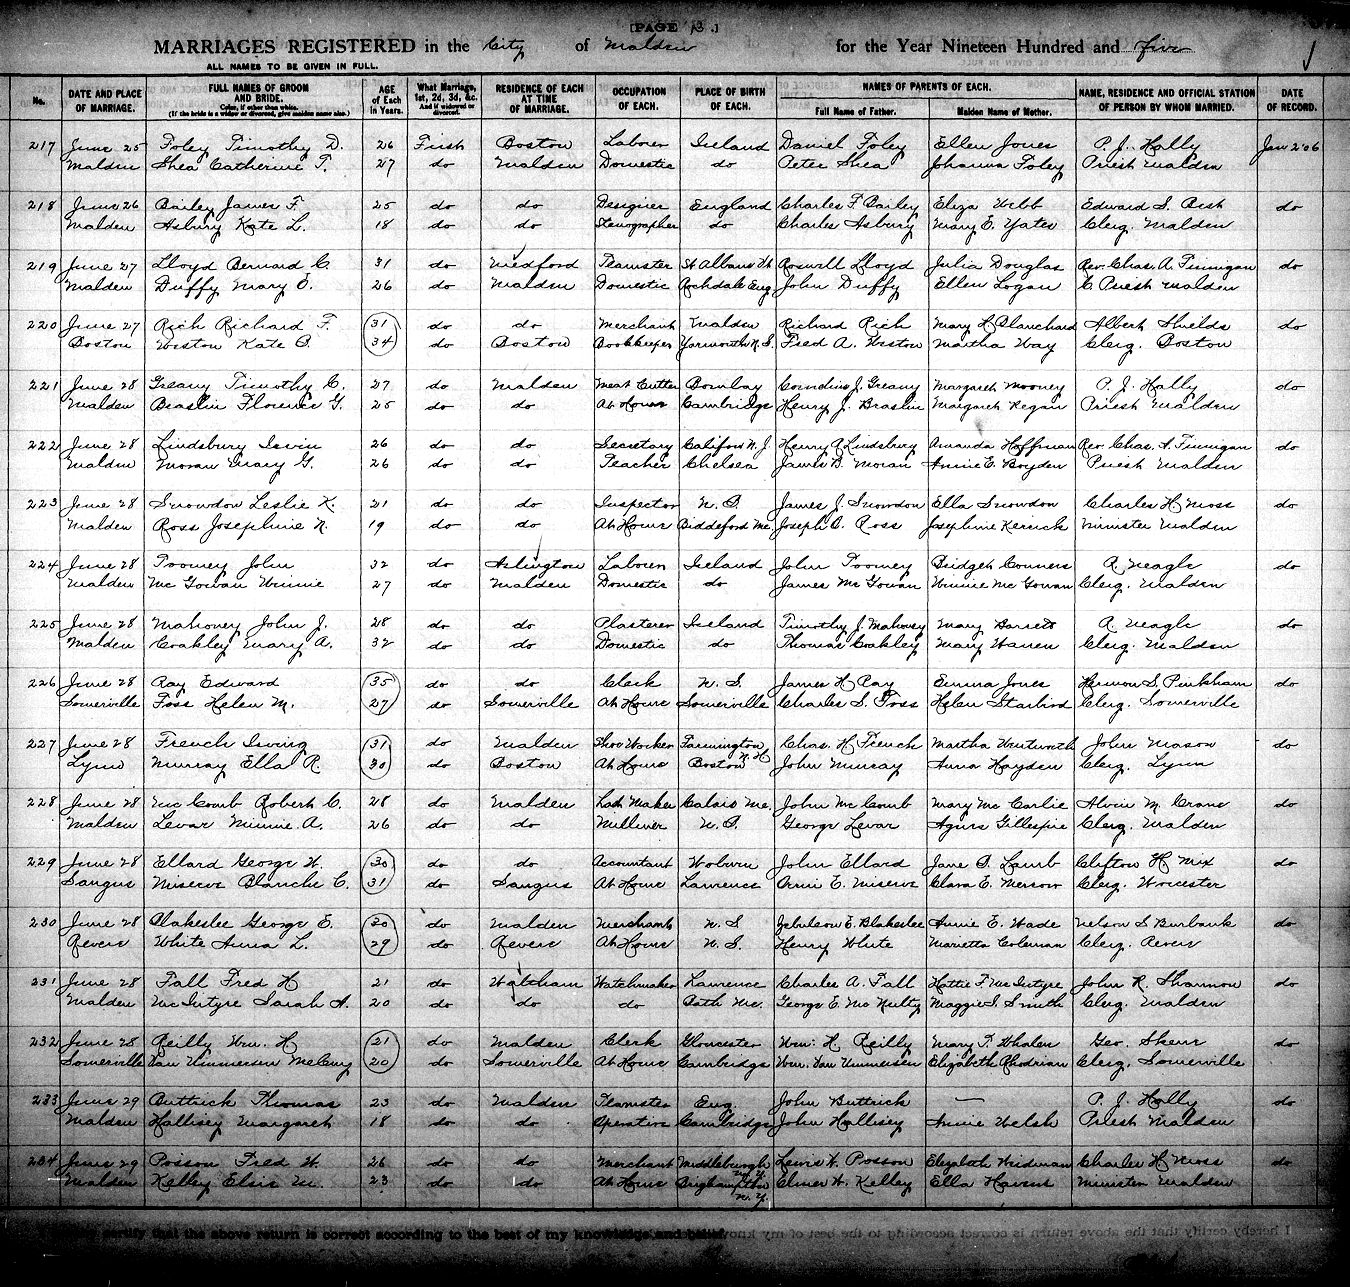 [PAGE 13.]
MARRIAGES REGISTERED in the City of Malden for the Year Nineteen Hundred and Five
ALL NAMES TO BE GIVEN IN FULL.
No. DATE AND PLACE OF MARRIAGE. FULL NAMES OF GROOM AND BRIDE. Color, if other than white. (If the bride is a widow or divorced, give maiden name also.) AGE of Each in Years. What Marriage, 1st, 2d, 3d, &c. And if widowed or divorced. RESIDENCE OF EACH AT TIME OF MARRIAGE. OCCUPATION OF EACH. PLACE OF BIRTH OF EACH. NAMES OF PARENTS OF EACH. Full Name of Father. Maiden Name of Mother. NAME, RESIDENCE AND OFFICIAL STATION OF PERSON BY WHOM MARRIED. DATE OF RECORD.
217 June 25 Foley Timothy D. 26 First Boston Laborer Ireland Daniel Foley Ellen Jones P. J. Hally Jan 2 '06
Malden Shea Catherine T. 27 do Malden Domestic do Peter Shea Johanna Foley Priest Malden
218 June 26 Bailey James F. 25 do do Designer England Charles F Bailey Eliza Webb Edward S. Best do
Malden Asbury Kate L. 18 do do Stenographer do Charles Asbury Mary E. Yates Clerg. Malden
219 June 27 Lloyd Bernard C. 31 do Medford Teamster St Albans Vt Roswell Lloyd Julia Douglas Rev. Chas. A. Finnigan do
Malden Duffy Mary E. 26 do Malden Domestic Rochdale Eng John Duffy Ellen Logan C Priest Malden
220 June 27 Rich Richard F. 31 do do Merchant Malden Richard Rich Mary H Blanchard Albert Shields do
Boston Weston Kate B 34 do Boston Bookkeeper Yarmouth N.S. Fred A. Weston Martha Way Clerg. Boston
221 June 28 Greany Timothy C. 27 do Malden Meat Cutter Bombay Cornelius J. Greany Margaret Mooney P. J. Hally do
Malden Braslin Florence G. 25 do do At Home Cambridge Henry J. Braslin Margaret Regan Priest Malden
222 June 28 Lindsbury Irvin 26 do do Secretary Califord N.J Henry A Lindsbury Amanda Hoffman Rev. Chas. A. Finnigan do
Malden Moran Mary G. 26 do do Teacher Chelsea James B. Moran Annie E. Boyden Priest Malden
223 June 28 Snowdon Leslie K. 21 do do Inspector N. B. James J. Snowdon Ella Snowdon Charles H. Moss do
Malden Ross Josephine N. 19 do do At Home Biddeford Me. Joseph B. Ross Josephine Kerrick Minister Malden
224 June 28 Toomey John 32 do Arlington Laborer Ireland John Toomey Bridget Connors R. Neagle do
Malden McGowan Winnie 27 do Malden Domestic do James McGowan Winnie McGowan Clerg. Malden
225 June 28 Mahoney John J. 28 do do Plasterer Ireland Timothy J. Mahoney Mary Barrett R. Neagle do
Malden Coakley Mary A. 32 do do Domestic do Thomas Coakley Mary Warren Clerg. Malden
226 June 28 Ray Edward 35 do do Clerk N. S. James H Ray Emma Jones Hermon S. Pinkham do
Somerville Foss Helen M. 27 do Somerville At Home Somerville Charles S. Foss Helen Starbird Clerg. Somerville
227 June 28 French Irving 31 do Malden Shoe Worker Farmington N H Chas. H French Martha Wentworth John Mason do
Lynn Murray Ella R. 30 do Boston At Home Boston John Murray Anna Hayden Clerg. Lynn
228 June 28 McComb Robert C. 28 do Malden Last Maker Calais Me. John McComb Mary McCarlie Alvin M. Crane do
Malden Levar Minnie A. 26 do do Milliner N. B. George Levar Agnes Gillespie Clerg. Malden
229 June 28 Ellard George W. 30 do do Accountant Woburn John Ellard Jane B. Lamb Clifton H. Mix do
Saugus Miserve Blanche C. 31 do Saugus At Home Lawrence Orrin E. Miserve Clara E. Merrow Clerg. Worcester
230 June 28 Blakeslee George E. 30 do Malden Merchant N. S Zebuleon E. Blakeslee Annie E. Wade Nelson S Burbank do
Revere White Anna L. 29 do Revere At Home N. S. Henry White Marietta Coleman Clerg. Revere
231 June 28 Fall Fred H 21 do Waltham Watchmaker Lawrence Charles A. Fall Hattie F McIntyre John R. Shannon do
Malden McIntyre Sarah A. 20 do do do Bath Me. George E. McNulty Maggie S. Smith Clerg. Malden
232 June 28 Reilly Wm. H 21 do Malden Clerk Gloucester Wm. H Reilly Mary T. Whalen Geo. Skene do
Somerville Van Ummersen 20 do Somerville At Home Cambridge Wm. Van Ummersen Elizabeth Rhodrian Clerg. Somerville
233 June 29 Buttrick Thomas 23 do Malden Teamster Eng. John Buttrick — P. J. Hally do
Malden Hallisey Margaret 18 do do Operative Cambridge John Hallisey Annie Welsh Priest Malden
234 June 29 Posson Fred W. 26 do do Merchant Middleburgh N.Y. Lewis W. Posson Elizabeth Weidman Charles H. Moss do
Malden Kelley Elsie M. 23 do do At Home Binghampton N.Y. Elmer W. Kelley Ella Havens Minister Malden
certify that the above return is correct according to the best of my knowledge and belief.